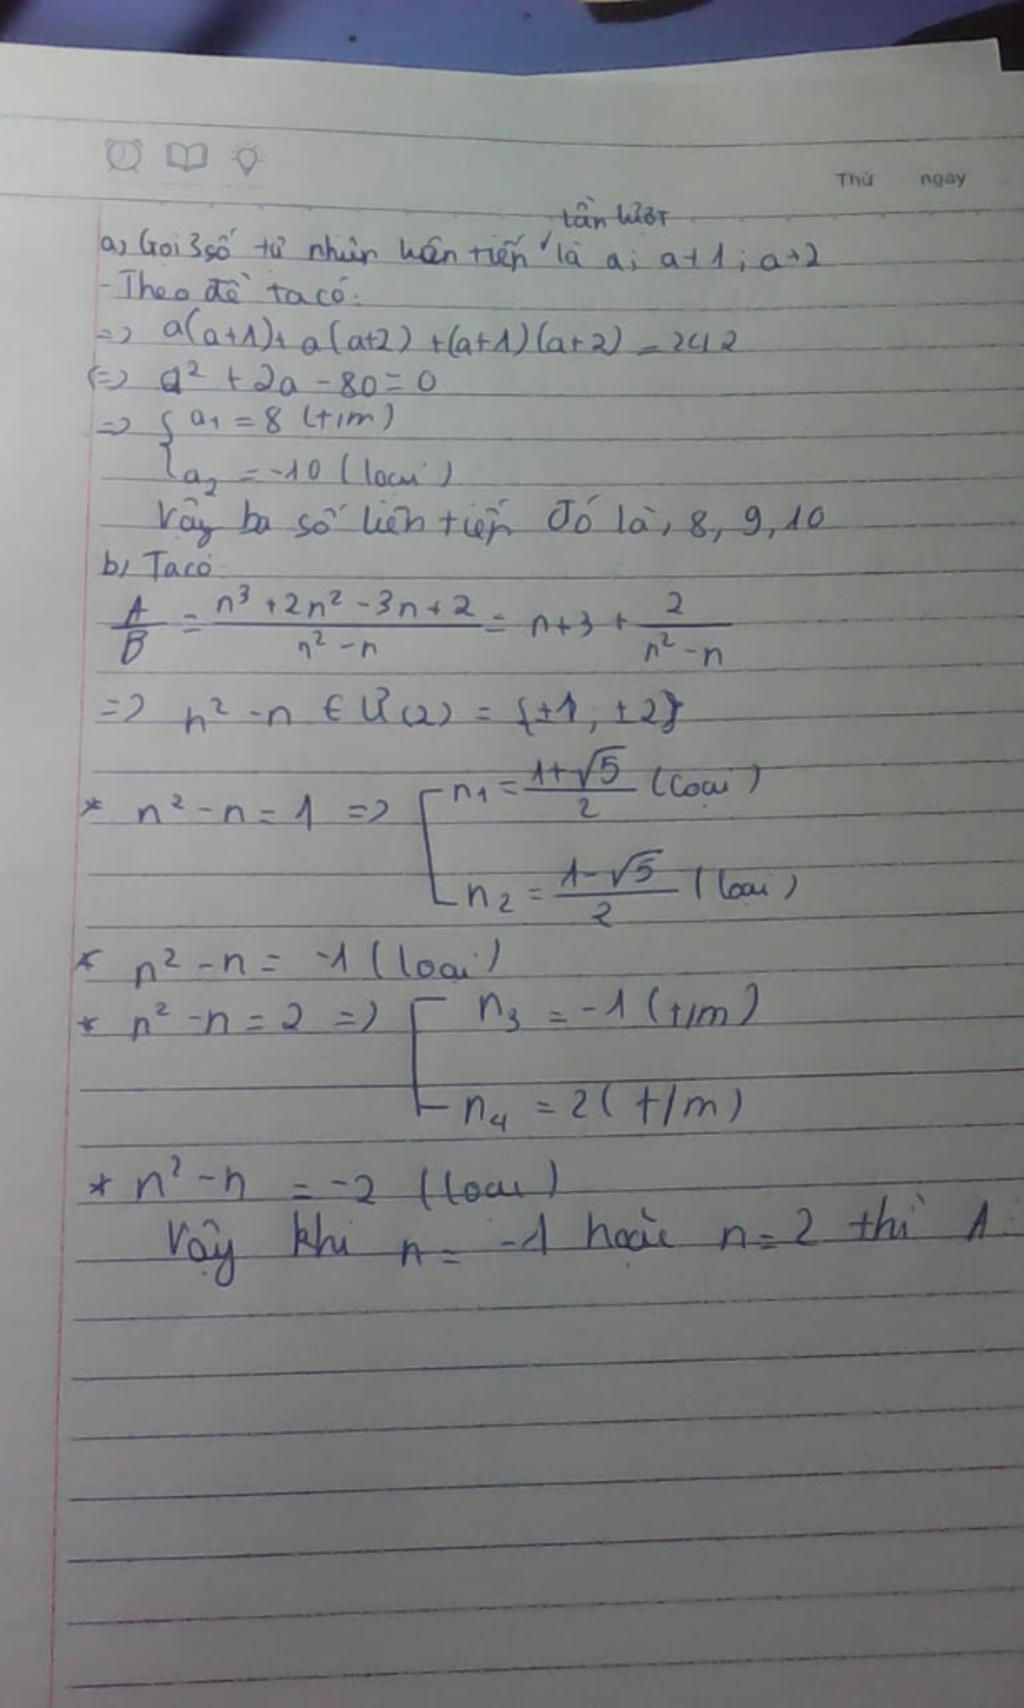 Thứ ngày
lần lượt
a, Gọi 3 số tự nhiên liên tiếp là a; a+1; a+2
- Theo đề ta có:
=> a(a+1)+ a(a+2) +(a+1)(a+2) = 242
<=> a² + 2a - 80 = 0
=> { a₁ = 8 (t/m)
a₂ = -10 (loại)
Vậy ba số liên tiếp đó là, 8, 9, 10
b, Ta có
A/B = (n³ + 2n² - 3n + 2)/(n² - n) = n+3 + 2/(n² - n)
=> n² - n ∈ Ư(2) = {±1, ±2}
* n² - n = 1 => [ n₁ = (1+√5)/2 (loại)
n₂ = (1-√5)/2 (loại)
* n² - n = -1 (loại)
* n² - n = 2 => [ n₃ = -1 (t/m)
n₄ = 2 (t/m)
* n² - n = -2 (loại)
Vậy khi n = -1 hoặc n = 2 thì A